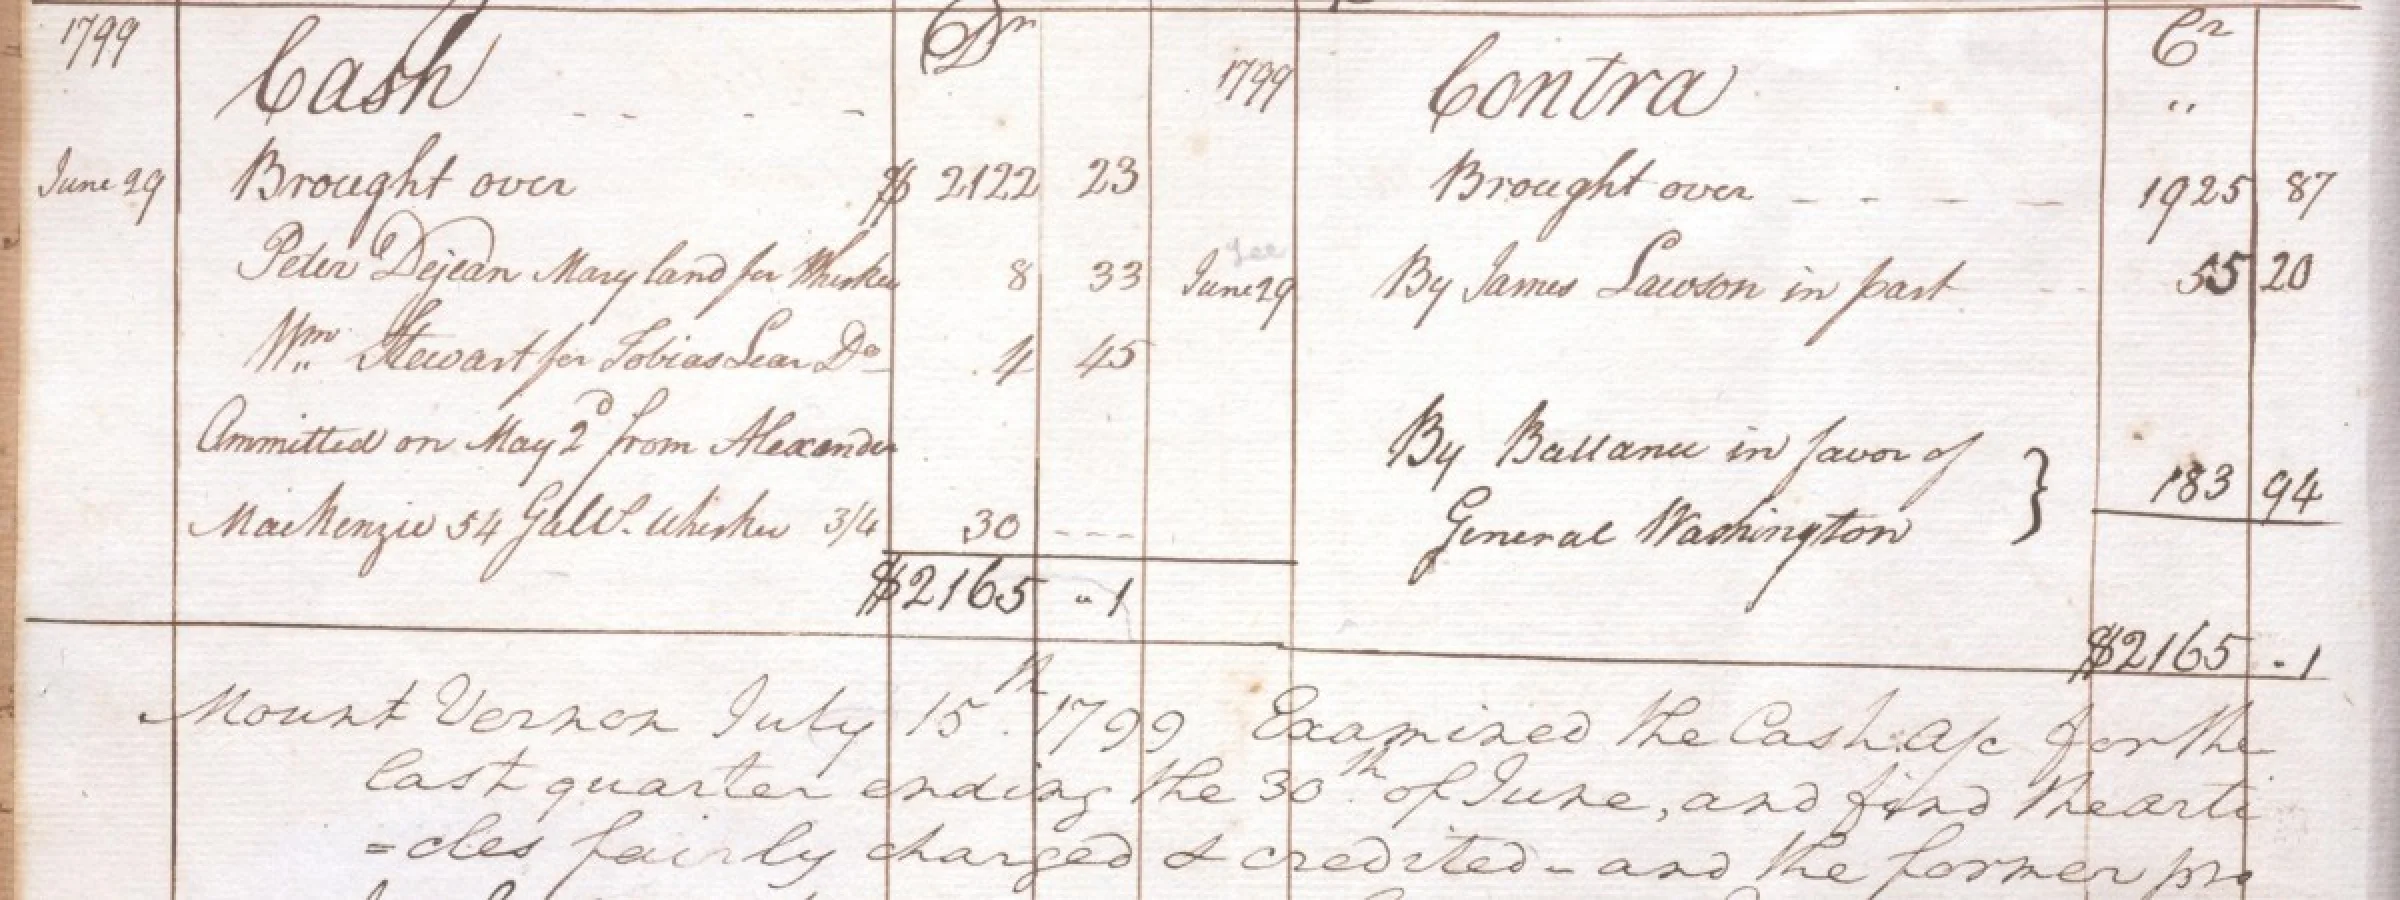 1799 Cash - - - - Dr
June 29 Brought over $ 2122 23
Peter Dejean Maryland for Whiskey 8 33
Wm. Stewart for Tobias Lear Do 4 45
Ommitted on May 2d from Alexander
MacKenzie 54 Galls. Whiskey 3/4 30 - - -
$2165 "1
1799 Contra Cr
"
Brought over - - - - 1925 87
Lee
June 29 By James Lawson in part 55 20
By Ballance in favor of
General Washington } 183 94
$2165 "1
Mount Vernon July 15th. 1799 Examined the Cash a/c for the
last quarter ending the 30th. of June, and find the arti
=cles fairly charged & credited - and the former pro